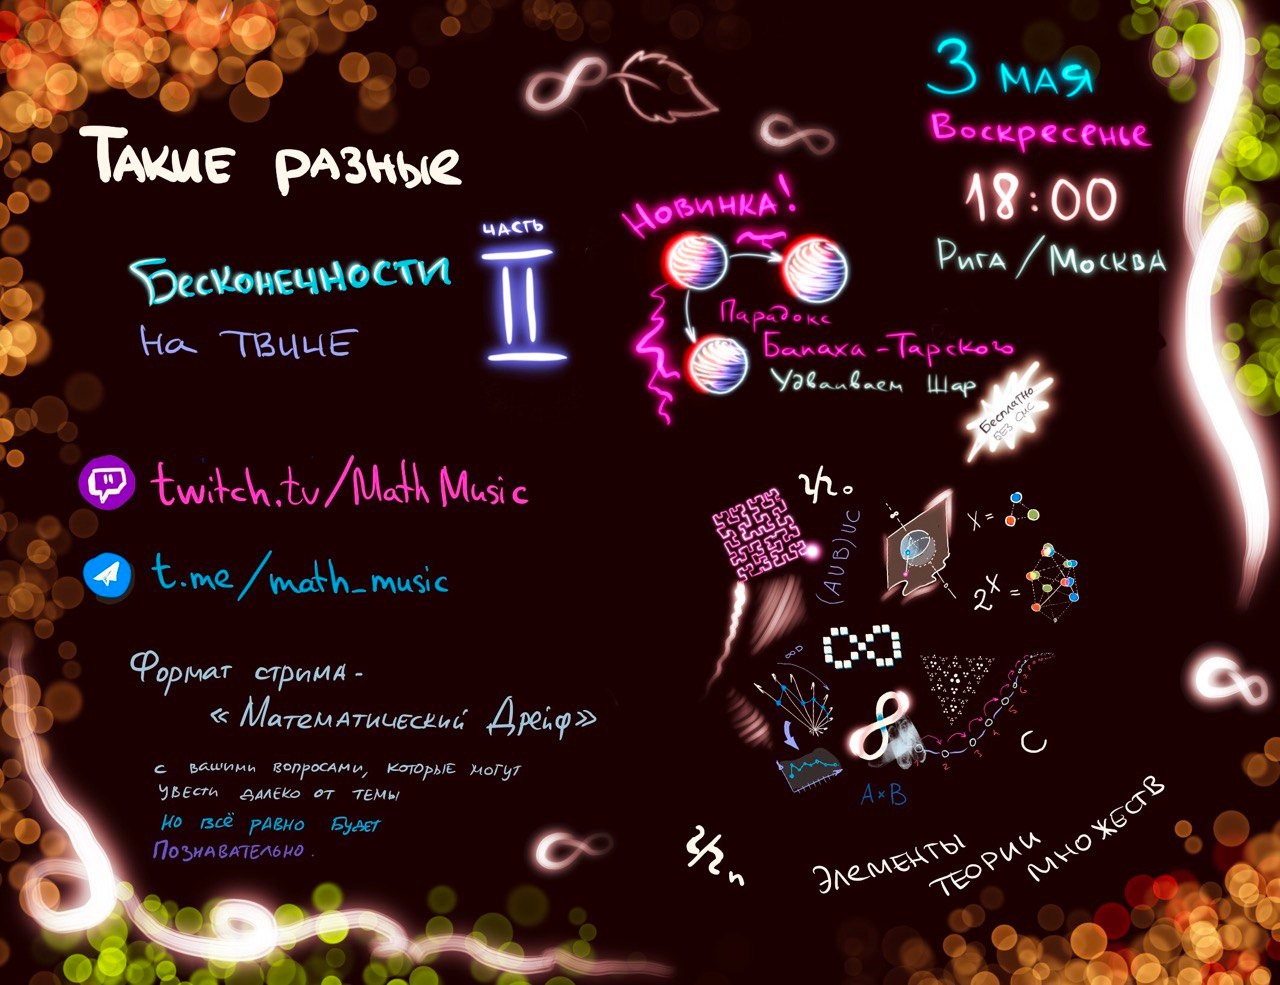 Такие разные
Бесконечности
на твиче
часть
II
3 мая
Воскресенье
18:00
Рига/Москва
Новинка!
Парадокс
Банаха-Тарского
Удваиваем Шар
Бесплатно
без смс
twitch.tv/MathMusic
t.me/math_music
Формат стрима -
«Математический Дрейф»
с вашими вопросами, которые могут
увести далеко от темы
но всё равно будет
Познавательно.
ℵ₀
(A∪B)∪C
X =
2^X =
∞
1 2 3 4 5 6 7
C
A×B
ℵₙ
Элементы
теории
множеств